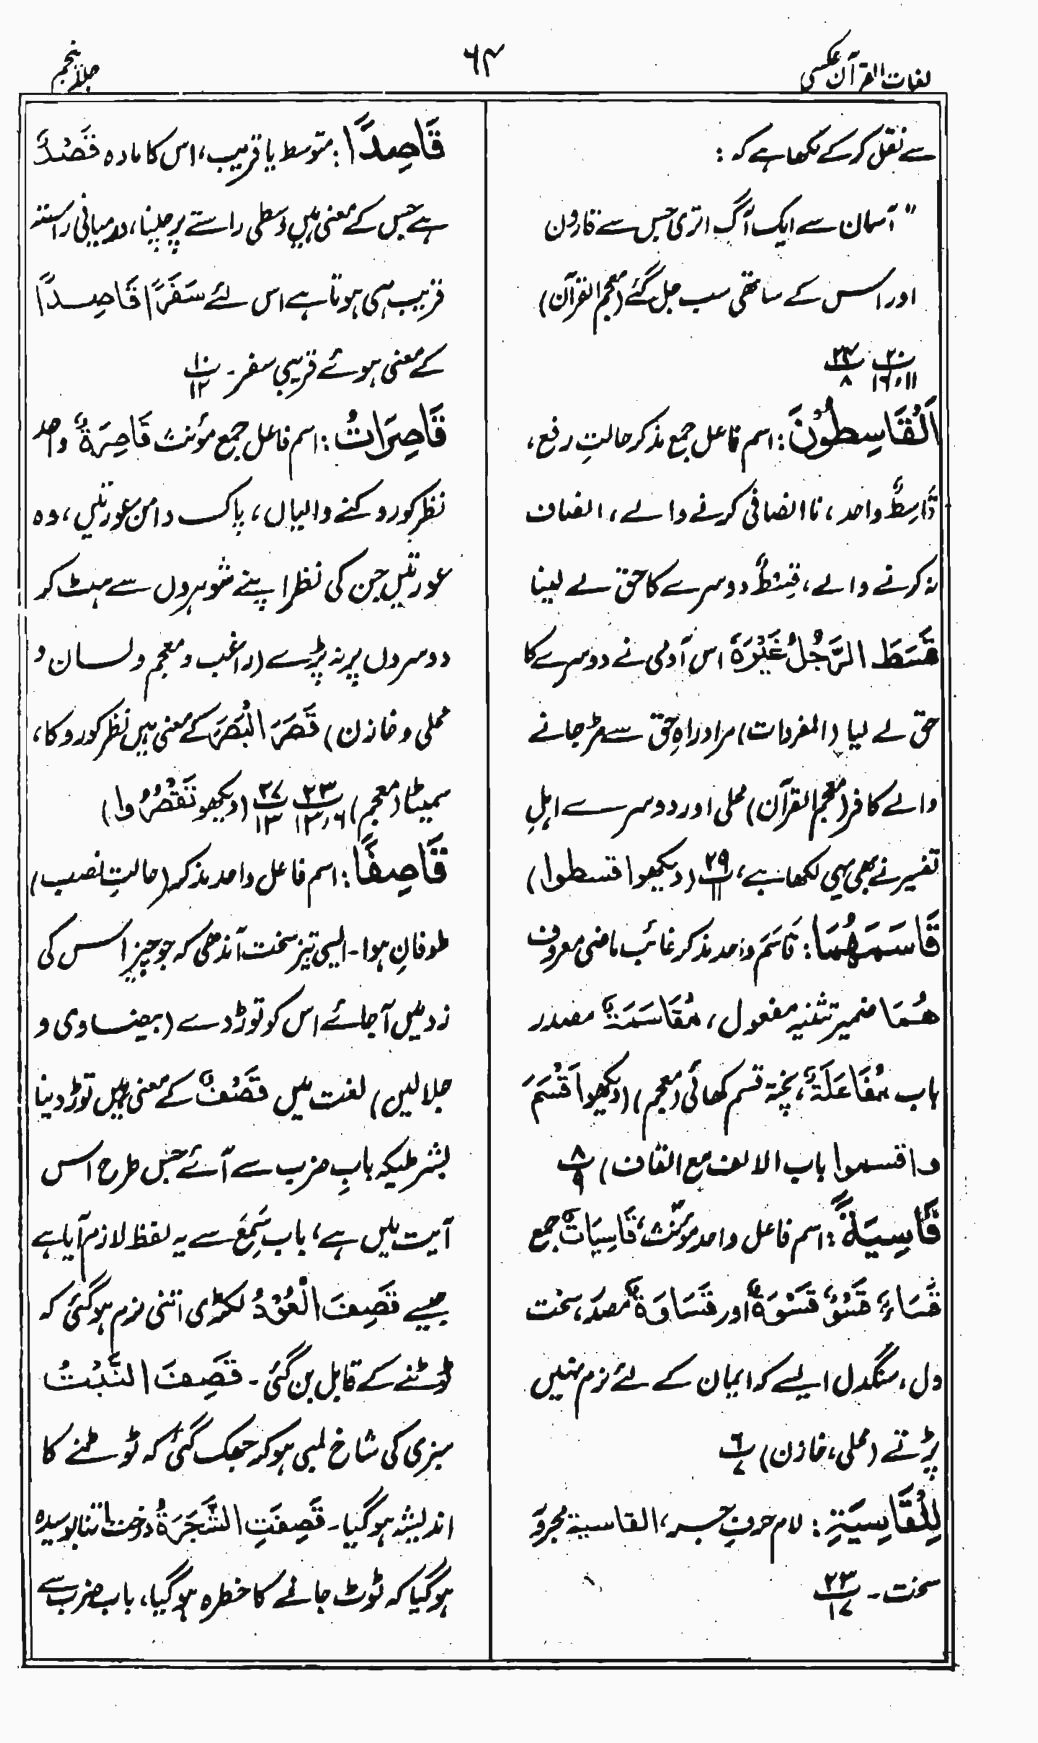 لغات القرآن عکسی
۶۴
جلد پنجم
سے نقل کرکے لکھا ہے کہ :
" آسمان سے ایک آگ اتری جس سے قارون
اور اس کے ساتھی سب جل گئے (معجم القرآن)
پ۲۰ ۱۱،۱۶ پ۲۴ ۸
اَلْقَاسِطُوْنَ : اسم فاعل جمع مذکر حالتِ رفع،
قَاسِطٌ واحد، ناانصافی کرنے والے، انصاف
نہ کرنے والے، قِسْطٌ دوسرے کا حق لے لینا
قَسَطَ الرَّجُلُ غَیْرَہٗ اس آدمی نے دوسرے کا
حق لے لیا (المفردات) مراد راہِ حق سے مڑ جانے
والے کافر (معجم القرآن) محلی اور دوسرے اہلِ
تفسیر نے بھی یہی لکھا ہے، پ۲۹ ۱۱ (دیکھو اقسطوا)
قَاسَمَهُمَا : قَاسَمَ واحد مذکر غائب ماضی معروف
هُمَا ضمیر تثنیہ مفعول، مُقَاسَمَةٌ مصدر
باب مُفَاعَلَةٌ، پختہ قسم کھائی (معجم) (دیکھو اَقْسَمَ
و اقسموا باب الالف مع القاف) پ۸ ۹
قَاسِیَةً : اسم فاعل واحد مؤنث، قَاسِیَاتٌ جمع
قَسَاءٌ، قَسْوٌ، قَسْوَةٌ اور قَسَاوَةٌ مصدر، سخت
دل، سنگدل ایسے کہ ایمان کے لئے نرم نہیں
پڑتے (محلی، خازن) پ۶ ۷
لِلْقَاسِیَةِ : لام حرفِ جر، القاسیۃ مجرور
سخت ۔ پ۲۳ ۱۷
قَاصِدًا : متوسط یا قریب، اس کا مادہ قَصْدٌ
ہے جس کے معنی ہیں وسطی راستے پر چلنا، درمیانی راستہ
قریب ہی ہوتا ہے اس لئے سَفَرًا قَاصِدًا
کے معنی ہوئے قریبی سفر ۔ پ۱۰ ۱۲
قَاصِرَاتُ : اسم فاعل جمع مؤنث قَاصِرَةٌ واحد
نظر کو روکنے والیاں، پاک دامن عورتیں، وہ
عورتیں جن کی نظر اپنے شوہروں سے ہٹ کر
دوسروں پر نہ پڑے (راغب و معجم و لسان و
محلی و خازن) قَصَرَ الْبَصَرَ کے معنی ہیں نظر کو روکا،
سمیٹا (معجم) پ۲۳ ۶،۱۳ پ۲۷ ۱۳ (دیکھو تَقْصُرُوا)
قَاصِفًا : اسم فاعل واحد مذکر (حالتِ نصب)
طوفانِ ہوا ۔ ایسی تیز سخت آندھی کہ جو چیز اس کی
زد میں آجائے اس کو توڑ دے (بیضاوی و
جلالین) لغت میں قَصْفٌ کے معنی ہیں توڑ دینا
بشرطیکہ بابِ ضرب سے آئے جس طرح اس
آیت میں ہے، باب سَمِعَ سے یہ لفظ لازم آیا ہے
جیسے قَصِفَ الْعُوْدُ لکڑی اتنی نرم ہوگئی کہ
ٹوٹنے کے قابل بن گئی ۔ قَصِفَ النَّبْتُ
سبزی کی شاخ لمبی ہوکر جھک گئی کہ ٹوٹنے کا
اندیشہ ہوگیا ۔ قَصِفَتِ الشَّجَرَةُ درخت اتنا بوسیدہ
ہوگیا کہ ٹوٹ جانے کا خطرہ ہوگیا، باب ضرب سے